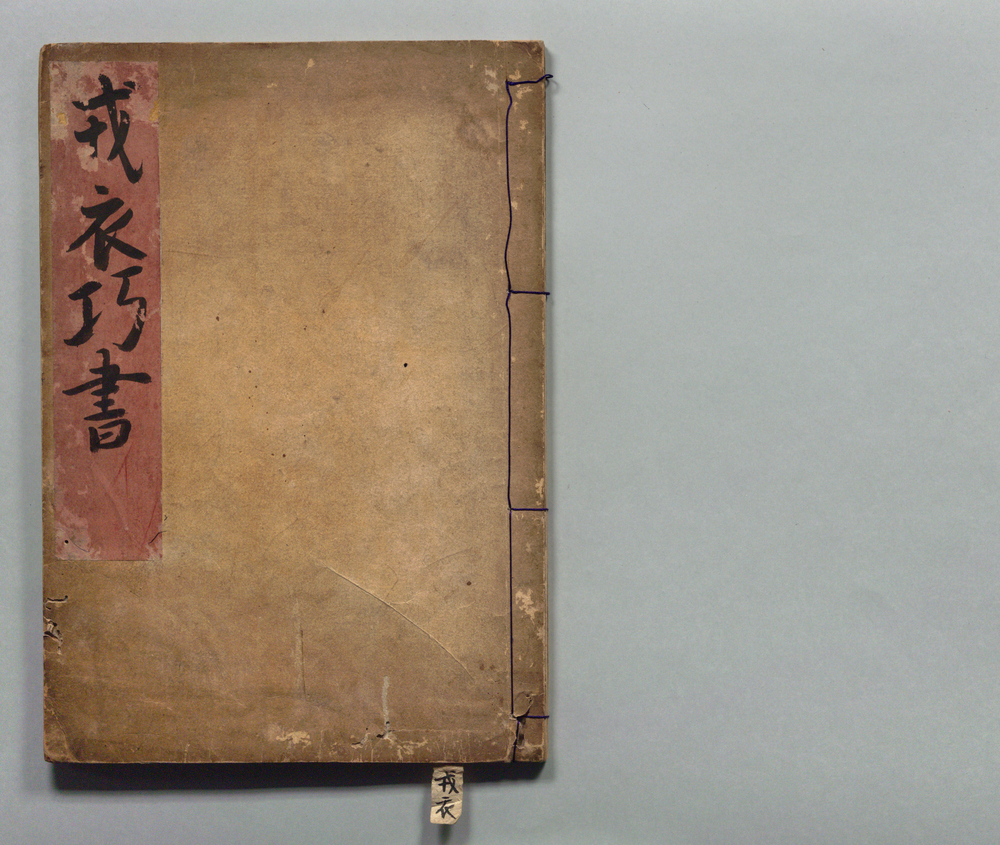 戎衣巧書
戎衣